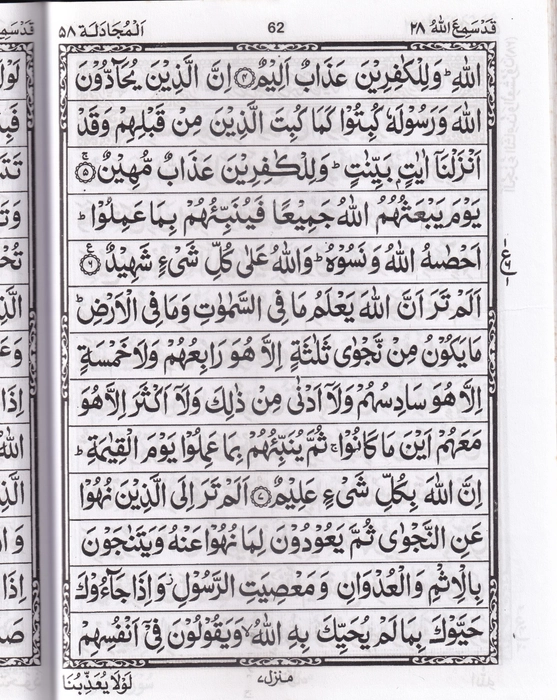 قَدْ سَمِعَ اللّٰهُ ٢٨
62
اَلْمُجَادَلَة ٥٨
اللّٰهِ ؕ وَلِلْكٰفِرِيْنَ عَذَابٌ اَلِيْمٌ ۝۴ اِنَّ الَّذِيْنَ يُحَآدُّوْنَ
اللّٰهَ وَرَسُوْلَهٗ كُبِتُوْا كَمَا كُبِتَ الَّذِيْنَ مِنْ قَبْلِهِمْ وَقَدْ
اَنْزَلْنَاۤ اٰيٰتٍۭ بَيِّنٰتٍ ؕ وَلِلْكٰفِرِيْنَ عَذَابٌ مُّهِيْنٌ ۝۵ۚ
يَوْمَ يَبْعَثُهُمُ اللّٰهُ جَمِيْعًا فَيُنَبِّئُهُمْ بِمَا عَمِلُوْا ؕ
اَحْصٰىهُ اللّٰهُ وَنَسُوْهُ ؕ وَاللّٰهُ عَلٰى كُلِّ شَيْءٍ شَهِيْدٌ ۝۶ع
اَلَمْ تَرَ اَنَّ اللّٰهَ يَعْلَمُ مَا فِى السَّمٰوٰتِ وَمَا فِى الْاَرْضِ ؕ
مَا يَكُوْنُ مِنْ نَّجْوٰى ثَلٰثَةٍ اِلَّا هُوَ رَابِعُهُمْ وَلَا خَمْسَةٍ
اِلَّا هُوَ سَادِسُهُمْ وَلَاۤ اَدْنٰى مِنْ ذٰلِكَ وَلَاۤ اَكْثَرَ اِلَّا هُوَ
مَعَهُمْ اَيْنَ مَا كَانُوْا ۚ ثُمَّ يُنَبِّئُهُمْ بِمَا عَمِلُوْا يَوْمَ الْقِيٰمَةِ ؕ
اِنَّ اللّٰهَ بِكُلِّ شَيْءٍ عَلِيْمٌ ۝۷ اَلَمْ تَرَ اِلَى الَّذِيْنَ نُهُوْا
عَنِ النَّجْوٰى ثُمَّ يَعُوْدُوْنَ لِمَا نُهُوْا عَنْهُ وَيَتَنٰجَوْنَ
بِالْاِثْمِ وَالْعُدْوَانِ وَمَعْصِيَتِ الرَّسُوْلِ ؗ وَاِذَا جَآءُوْكَ
حَيَّوْكَ بِمَا لَمْ يُحَيِّكَ بِهِ اللّٰهُ ۙ وَيَقُوْلُوْنَ فِىْۤ اَنْفُسِهِمْ
منزل ٧
لَوْلَا يُعَذِّبُنَا